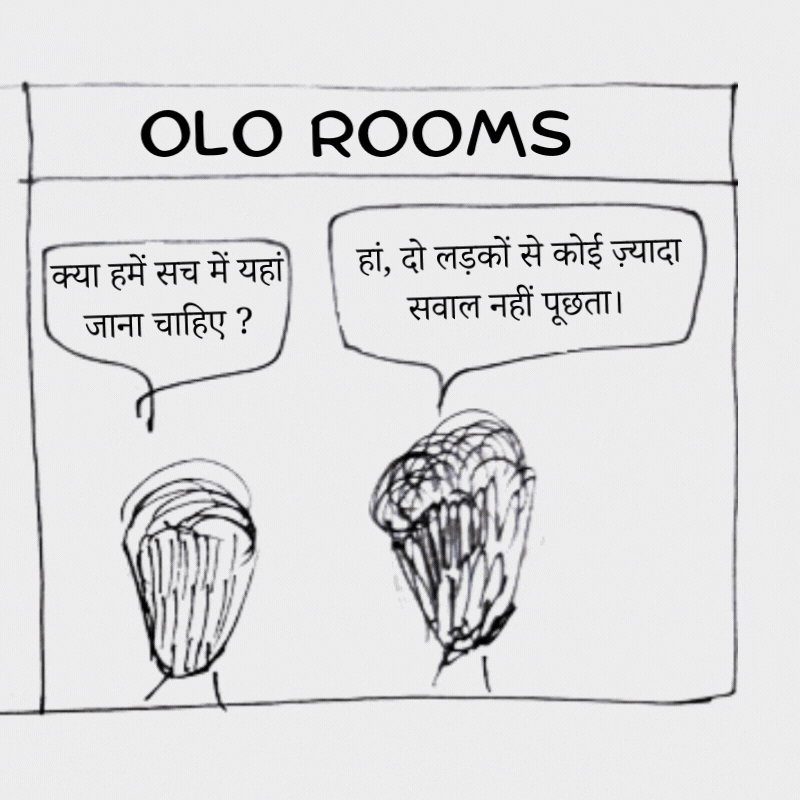 OLO ROOMS
क्या हमें सच में यहां
जाना चाहिए ?
हां, दो लड़कों से कोई ज़्यादा
सवाल नहीं पूछता।